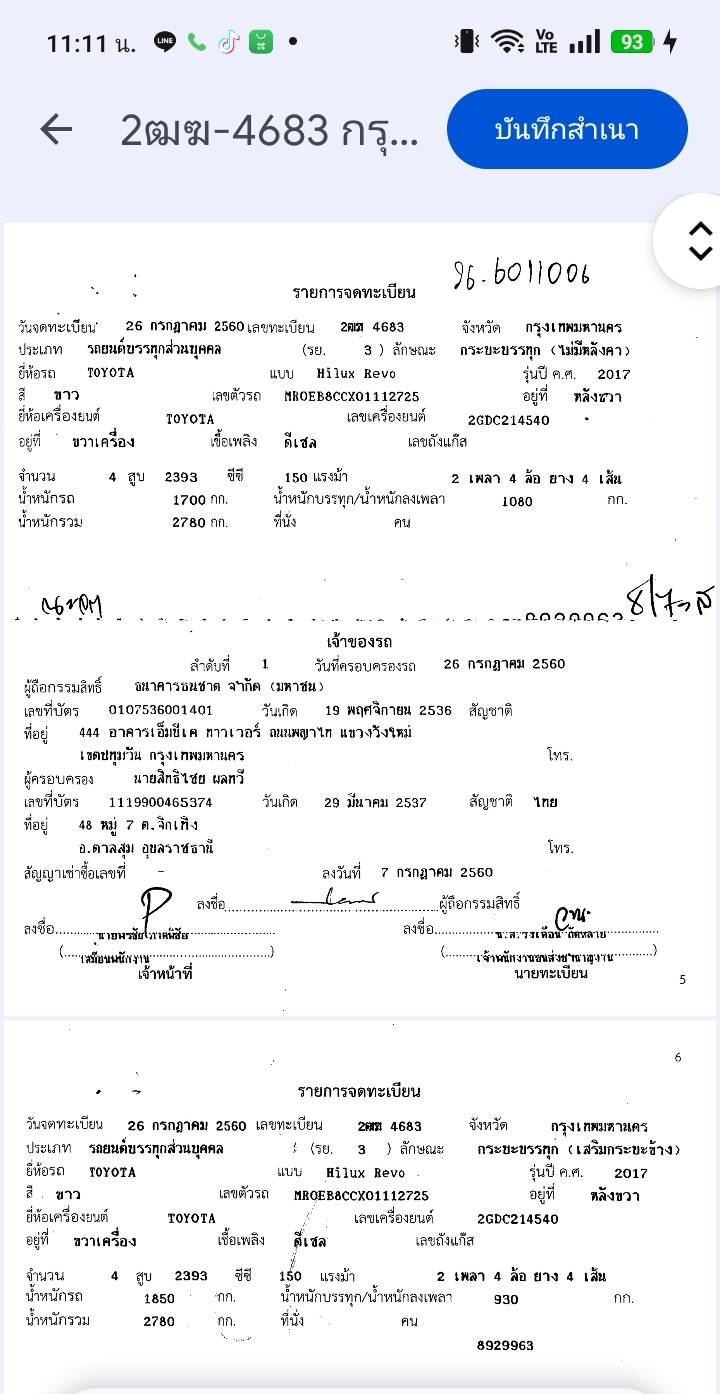 11:11 น. LINE Vo LTE 93
2ฒฆ-4683 กรุ... บันทึกสำเนา
รายการจดทะเบียน
วันจดทะเบียน 26 กรกฎาคม 2560 เลขทะเบียน 2ฒฆ 4683 จังหวัด กรุงเทพมหานคร
ประเภท รถยนต์บรรทุกส่วนบุคคล (รย. 3 ) ลักษณะ กระบะบรรทุก (ไม่มีหลังคา)
ยี่ห้อรถ TOYOTA แบบ Hilux Revo รุ่นปี ค.ศ. 2017
สี ขาว เลขตัวรถ MR0EB8CCX01112725 อยู่ที่ หลังขวา
ยี่ห้อเครื่องยนต์ TOYOTA เลขเครื่องยนต์ 2GDC214540
อยู่ที่ ขวาเครื่อง เชื้อเพลิง ดีเซล เลขถังแก๊ส
จำนวน 4 สูบ 2393 ซีซี 150 แรงม้า 2 เพลา 4 ล้อ ยาง 4 เส้น
น้ำหนักรถ 1700 กก. น้ำหนักบรรทุก/น้ำหนักลงเพลา 1080 กก.
น้ำหนักรวม 2780 กก. ที่นั่ง คน
เจ้าของรถ
ลำดับที่ 1 วันที่ครอบครองรถ 26 กรกฎาคม 2560
ผู้ถือกรรมสิทธิ์ ธนาคารธนชาต จำกัด (มหาชน)
เลขที่บัตร 0107536001401 วันเกิด 19 พฤศจิกายน 2536 สัญชาติ
ที่อยู่ 444 อาคารเอ็มบีเค ทาวเวอร์ ถนนพญาไท แขวงวังใหม่
เขตปทุมวัน กรุงเทพมหานคร โทร.
ผู้ครอบครอง นายสิทธิไชย ผลทวี
เลขที่บัตร 1119900465374 วันเกิด 29 มีนาคม 2537 สัญชาติ ไทย
ที่อยู่ 48 หมู่ 7 ต.จิกเทิง
อ.ตาลสุม อุบลราชธานี โทร.
สัญญาเช่าซื้อเลขที่ - ลงวันที่ 7 กรกฎาคม 2560
ลงชื่อ ผู้ถือกรรมสิทธิ์
ลงชื่อ ลงชื่อ
เจ้าหน้าที่ นายทะเบียน
5
6
รายการจดทะเบียน
วันจดทะเบียน 26 กรกฎาคม 2560 เลขทะเบียน 2ฒฆ 4683 จังหวัด กรุงเทพมหานคร
ประเภท รถยนต์บรรทุกส่วนบุคคล (รย. 3 ) ลักษณะ กระบะบรรทุก (เสริมกระบะข้าง)
ยี่ห้อรถ TOYOTA แบบ Hilux Revo รุ่นปี ค.ศ. 2017
สี ขาว เลขตัวรถ MR0EB8CCX01112725 อยู่ที่ หลังขวา
ยี่ห้อเครื่องยนต์ TOYOTA เลขเครื่องยนต์ 2GDC214540
อยู่ที่ ขวาเครื่อง เชื้อเพลิง ดีเซล เลขถังแก๊ส
จำนวน 4 สูบ 2393 ซีซี 150 แรงม้า 2 เพลา 4 ล้อ ยาง 4 เส้น
น้ำหนักรถ 1850 กก. น้ำหนักบรรทุก/น้ำหนักลงเพลา 930 กก.
น้ำหนักรวม 2780 กก. ที่นั่ง คน
8929963